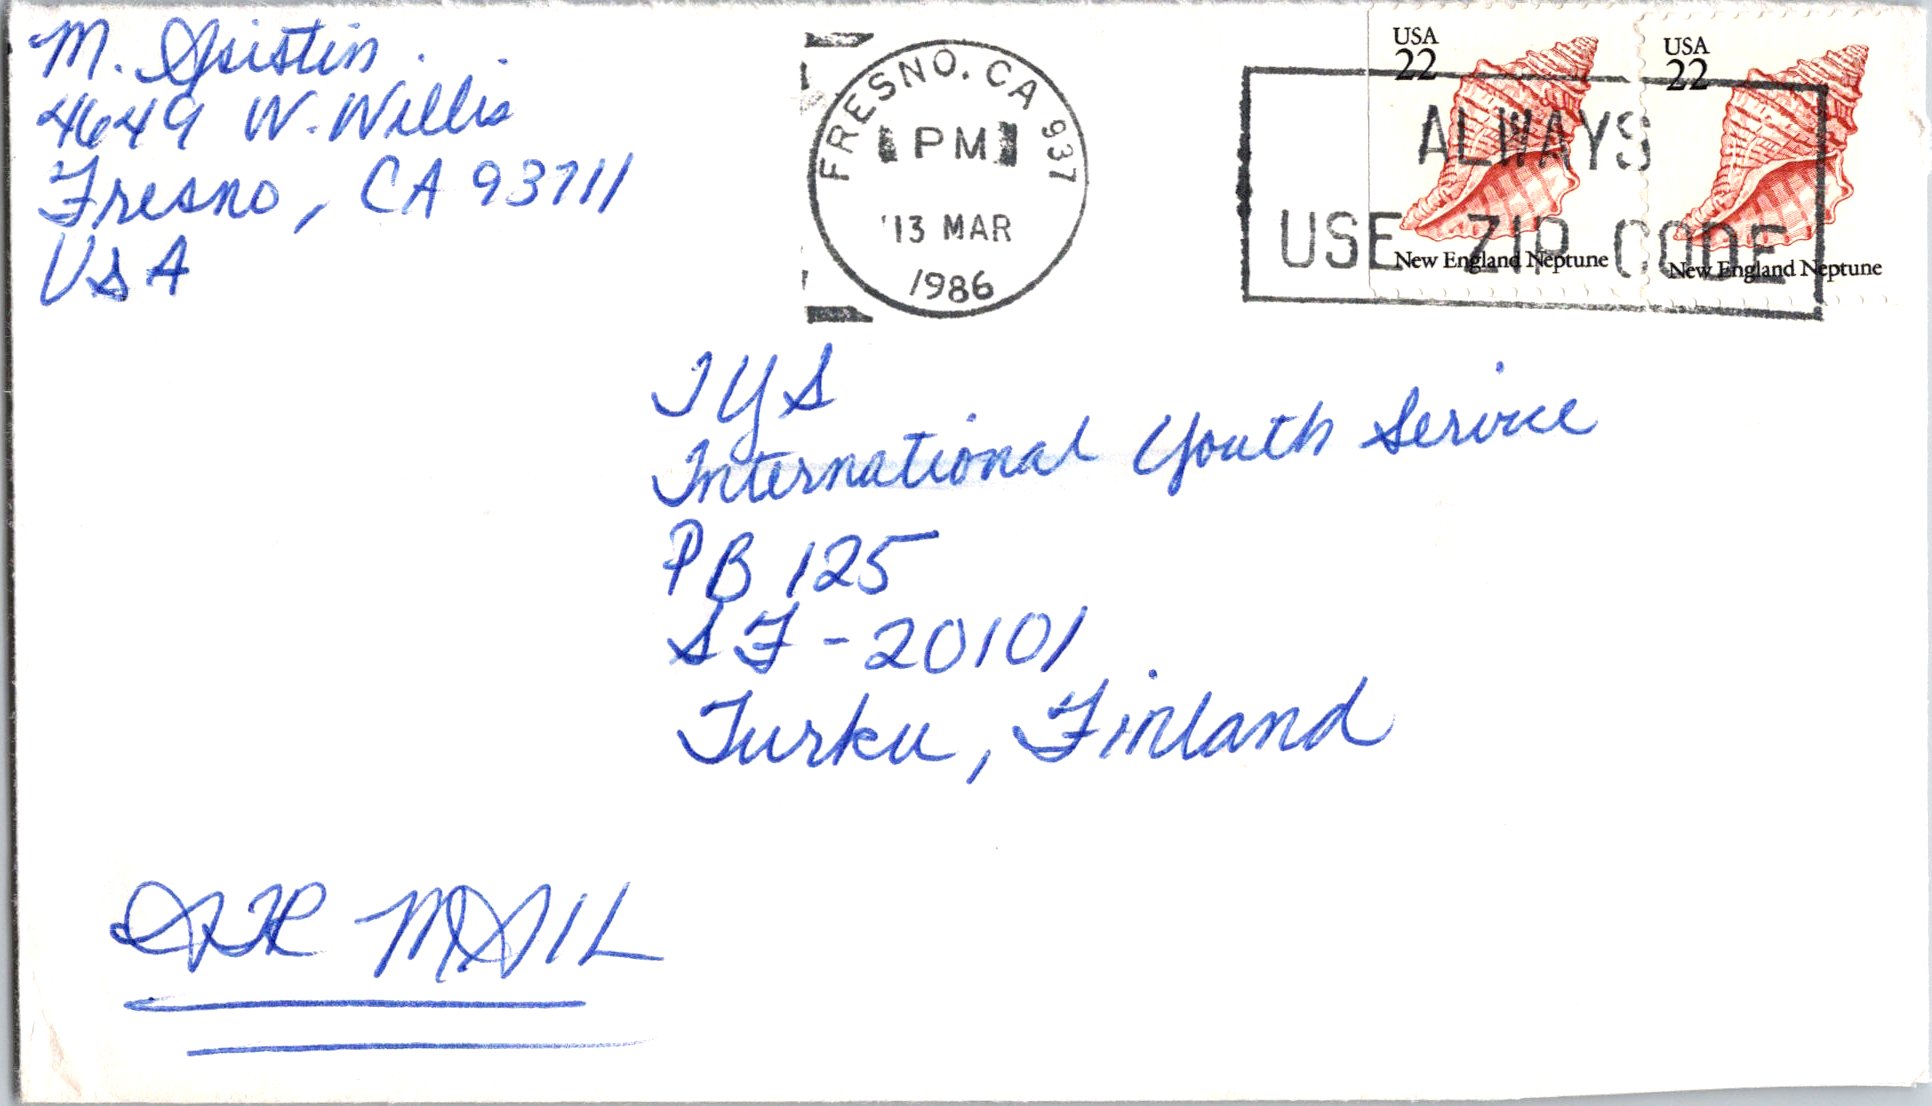 M.
4649 W. Willis
Fresno, CA 93711
USA
FRESNO, CA 937
PM
13 MAR
1986
USA
22
New England Neptune
USA
22
New England Neptune
ALWAYS
USE ZIP CODE
IYS
International Youth Service
PB 125
SF-20101
Turku, Finland
AIR MAIL